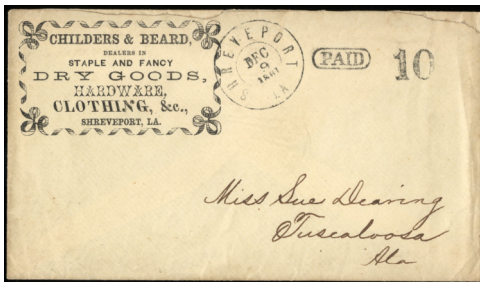 CHILDERS & BEARD,
DEALERS IN
STAPLE AND FANCY
DRY GOODS,
HARDWARE,
CLOTHING, &c.,
SHREVEPORT, LA.
SHREVEPORT LA
DEC
9
1861
PAID
10
Miss Sue Dearing
Tuscaloosa
Ala